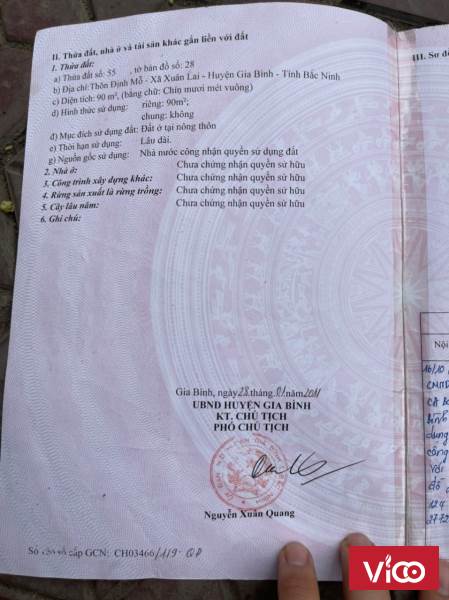 II. Thửa đất, nhà ở và tài sản khác gắn liền với đất
III. Sơ đồ
1. Thửa đất:
a) Thửa đất số: 55 , tờ bản đồ số: 28
b) Địa chỉ:Thôn Định Mỗ - Xã Xuân Lai - Huyện Gia Bình - Tỉnh Bắc Ninh
c) Diện tích: 90 m², (bằng chữ: Chín mươi mét vuông)
d) Hình thức sử dụng: riêng: 90m²;
chung: không
đ) Mục đích sử dụng đất: Đất ở tại nông thôn
e) Thời hạn sử dụng: Lâu dài.
g) Nguồn gốc sử dụng: Nhà nước công nhận quyền sử dụng đất
2. Nhà ở: Chưa chứng nhận quyền sử hữu
3. Công trình xây dựng khác: Chưa chứng nhận quyền sử hữu
4. Rừng sản xuất là rừng trồng: Chưa chứng nhận quyền sử hữu
5. Cây lâu năm: Chưa chứng nhận quyền sử hữu
6. Ghi chú:
Nội
16/10
CNTTD
dung
công
với
đổ
124
2772
Gia Bình, ngày 28 tháng 01 năm 2011
UBND HUYỆN GIA BÌNH
KT. CHỦ TỊCH
PHÓ CHỦ TỊCH
Nguyễn Xuân Quang
Số vào sổ cấp GCN: CH03466/119-QĐ
Vico